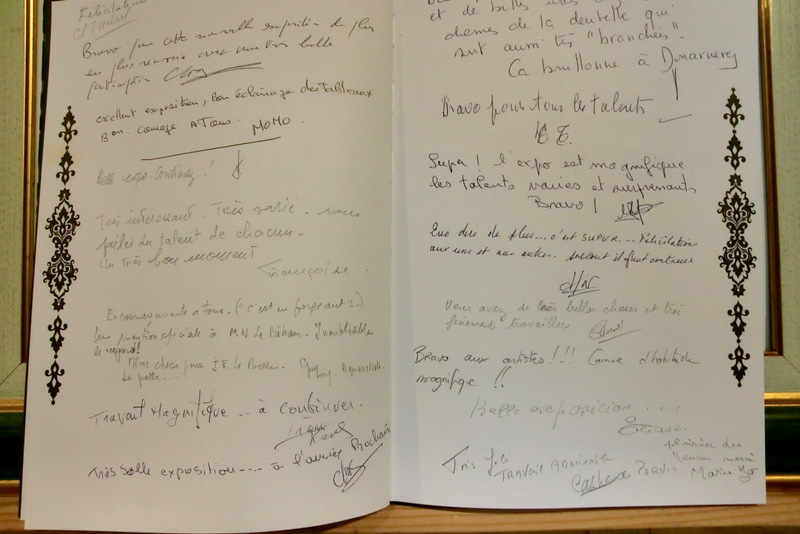 Félicitations
Bravo pour cette nouvelle exposition de plus
en plus avec une très belle
participation
excellent exposition, Bon éclairage des tableaux
Bon courage A Tous. MOMO.
belle expo. Continuez !
Très intéressant Très varié - vous
faites du talent de chacun -
Un très bon moment
Françoise.
Encouragements à Tous - (c'est en forgeant !..)
mention officielle à M.N Le Bihan - Inoubliable
le regard !
Même chose pour J.F. Le
La patte...
Travail Magnifique ... à Continuer.
Très belle exposition .... à l'année Prochaine
et de belles
dames de la dentelle qui
sont aussi très "branchées" -
Ca bouillonne à Douarnenez
Bravo pour tous les talents
Super ! l'expo est magnifique
les talents variés et surprenants
Bravo !
Que dire de plus... c'est SUPER ... Félicitations
aux uns et aux autres. surtout il faut continuer
Vous avez de très belles choses et très
finement travaillées
Bravo aux artistes !!! Comme d'habitude
magnifique !!
Belle exposition ...
Très joli
Travail